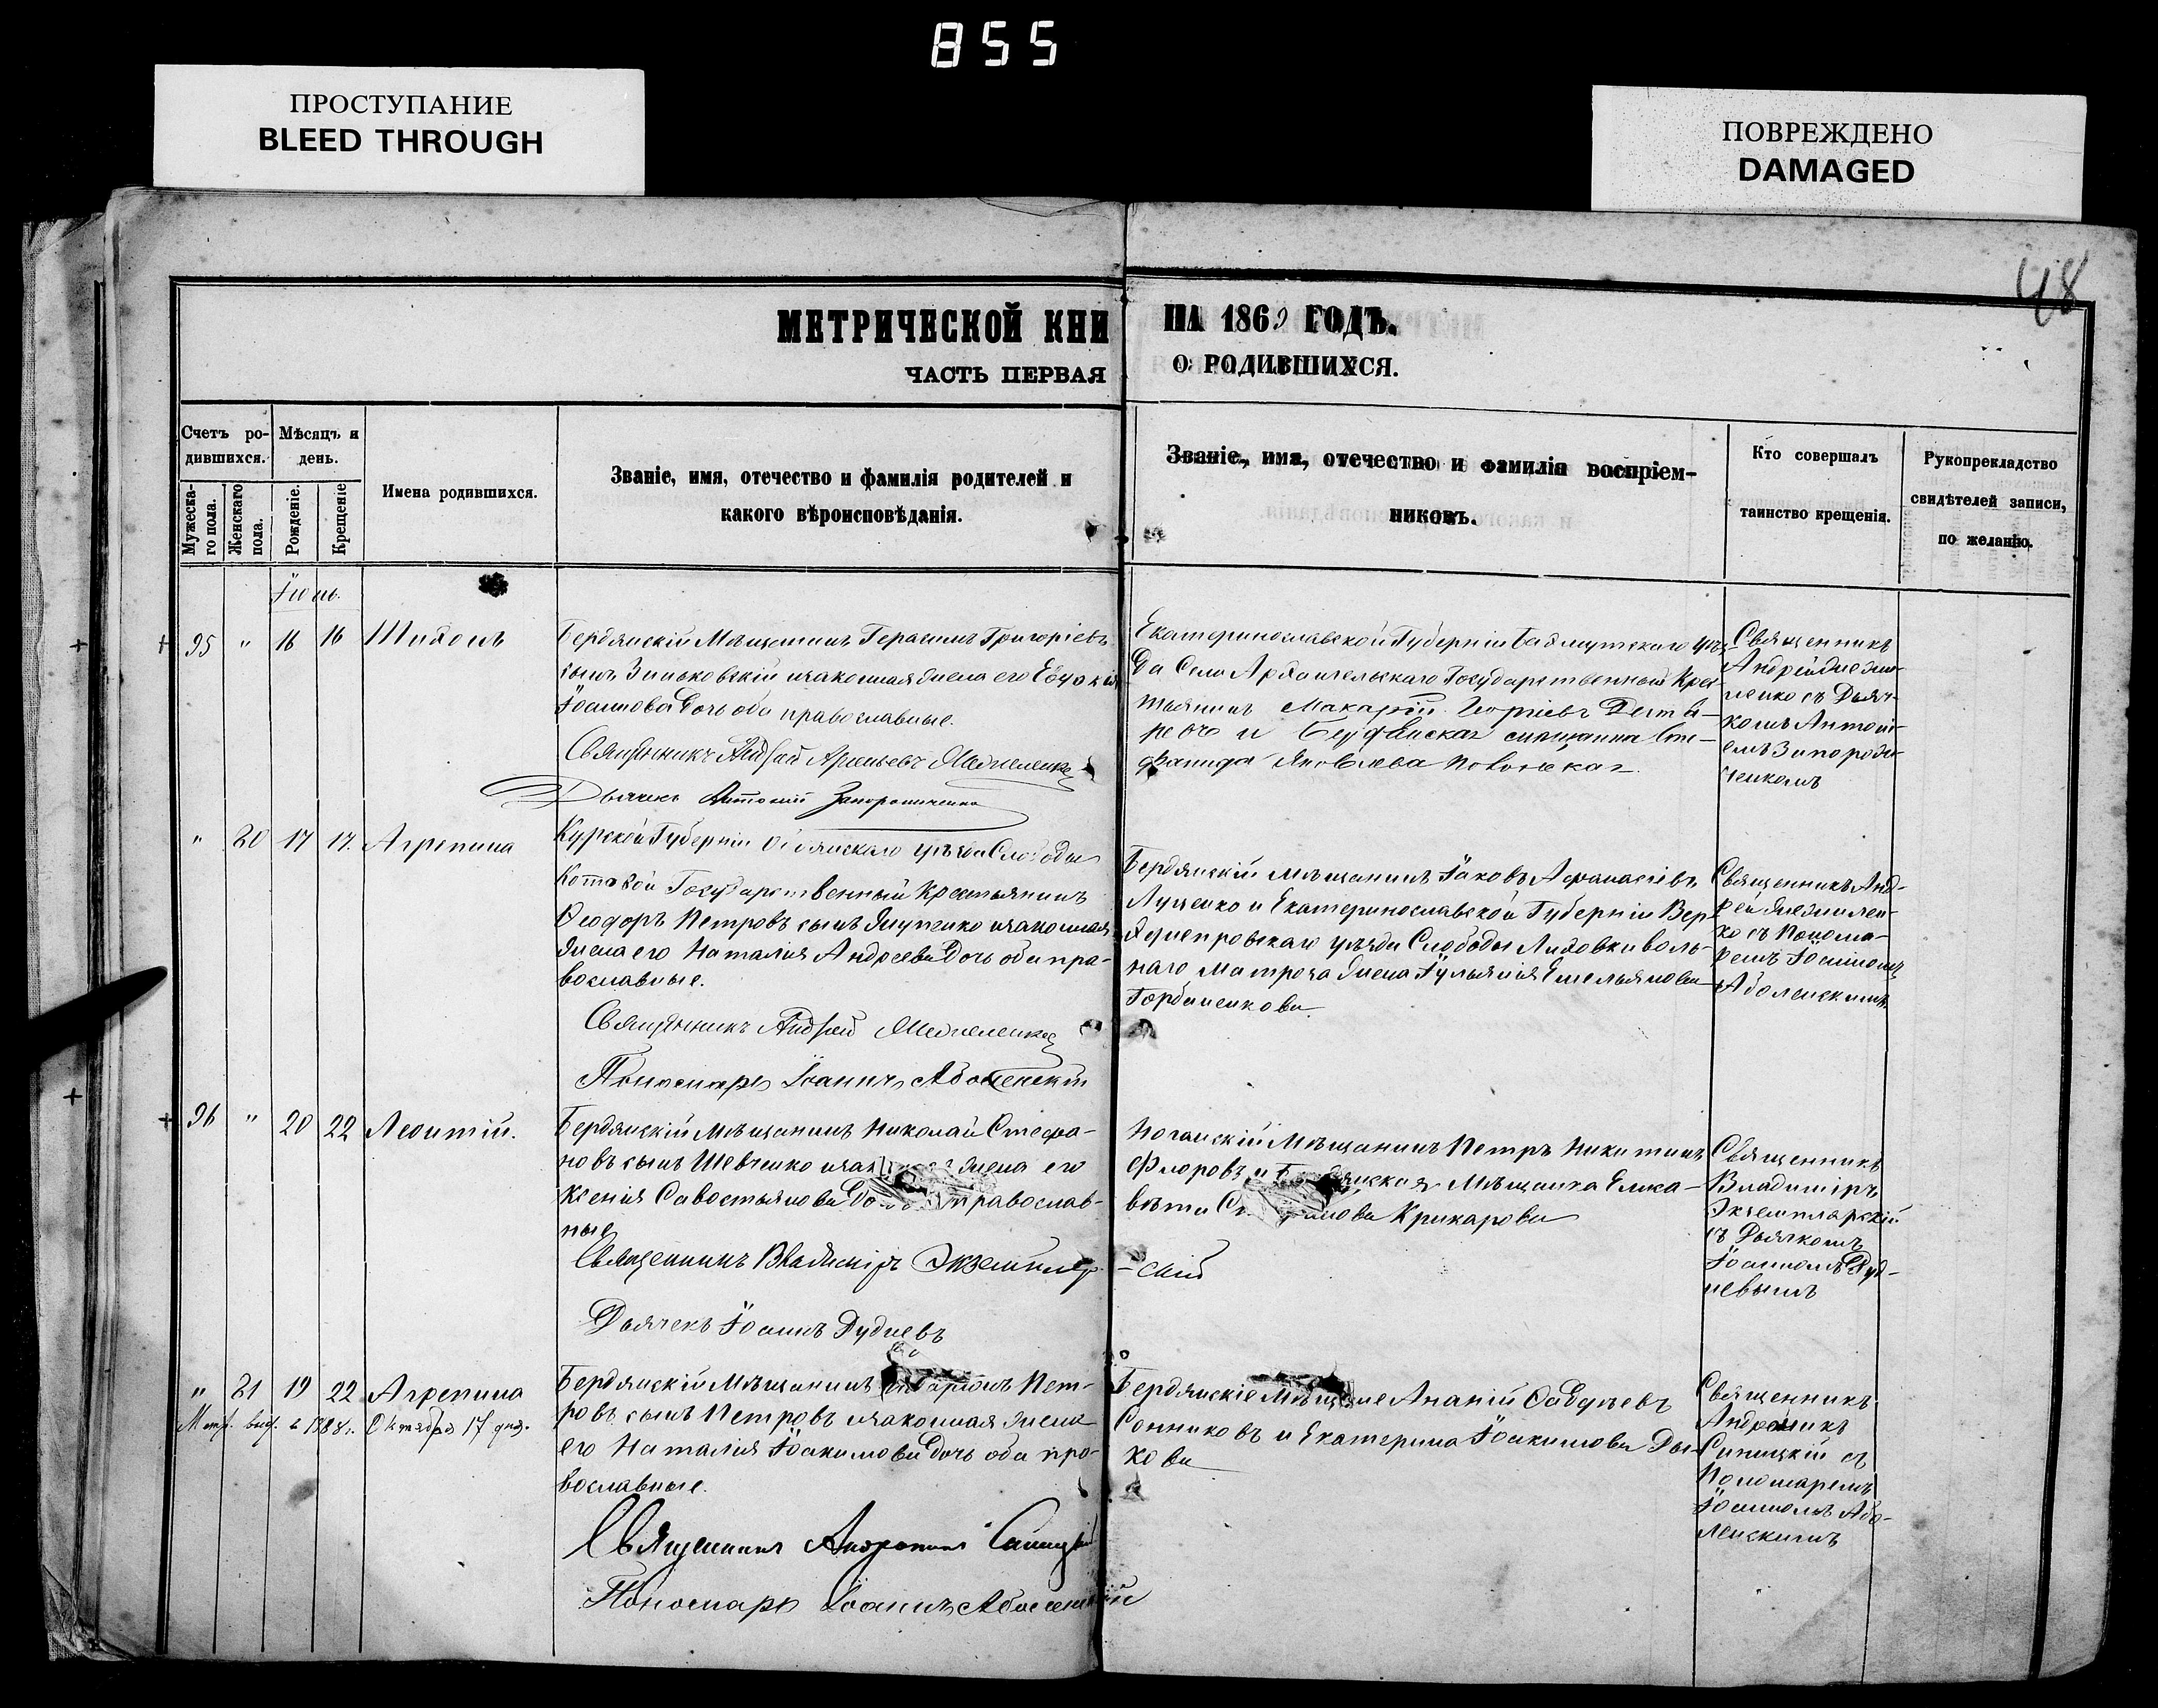 855
ПРОСТУПАНИЕ
BLEED THROUGH
ПОВРЕЖДЕНО
DAMAGED
48
МЕТРИЧЕСКОЙ КНИ
НА 1869 ГОДЪ.
ЧАСТЬ ПЕРВАЯ
О РОДИВШИХСЯ.
Счетъ ро-
дившихся.
Мужеска-
го пола.
Женскаго
пола.
Мѣсяцъ и
день.
Рожденіе.
Крещеніе
Имена родившихся.
Званіе, имя, отечество и фамилія родителей и
какого вѣроисповѣданія.
Званіе, имя, отечество и фамилія воспріем-
никовъ.
Кто совершалъ
таинство крещенія.
Рукоприкладство
свидѣтелей записи,
по желанію.
Іюнь.
95 " 16 16 Тихонъ
Бердянскій Мѣщанинъ Герасимъ Григорьевъ
сынъ Зиньковскій изаконная жена его Евдокія
Іоаннова дочь оба православные.
Священникъ Андрей Мелиеленко
Дьячекъ Антоній Запорожченко
Екатеринославской Губерніи Бахмутскаго уѣз
да Села Архангельскаго Государственный Крес
тьянинъ Макарій Георгіевъ
и Бердянская мещанка Сте-
фанида Яковлева
Священникъ
Андрей
ленко съ Дьяч-
комъ Антоні-
емъ Запорож-
ченкомъ
" 80 17 17. Агрепина
Курской Губерніи Обоянскаго уѣзда Слободы
Котовой Государственный Крестьянинъ
Ѳеодоръ Петровъ сынъ Якупенко изаконная
жена его Наталія Андреева дочь оба пра-
вославные.
Священникъ Андрей
Пономарь Іоаннъ Аболенскій
Бердянскій мѣщанинъ Іаковъ Афанасіевъ
Луценко и Екатеринославской Губерніи Вер
хнепровскаго уѣзда Слободы Лиховки воль-
наго матроса жена Іуліянія Емельянова
Горбаненкова
Священникъ Анд-
рей
ко съ Понома-
ремъ Іоанномъ
Аболенскимъ
96 " 20 22 Леонтій.
Бердянскій Мѣщанинъ Николай Стефа-
новъ сынъ Шевченко жена его
Ксенія Савостьянова православ-
ные
Священникъ Владиміръ Экземпляр-
скій
Дьячекъ Іоаннъ Рудневъ
Ногайскій Мѣщанинъ Петръ Никитинъ
Флоровъ и Бердянская Мѣщанка Елиса-
вѣта Крикарова
Священникъ
Владиміръ
Экземплярскій
съ Дьячкомъ
Іоанномъ Руд-
невымъ
" 81 19 22 Агрепина
Метр. выд. в 1888 г. Октября 17 дня.
Бердянскій Мѣщанинъ Пет-
ровъ сынъ Петровъ изаконная жена
его Наталія Іоакимова дочь оба пра-
вославные.
Священникъ Андроникъ Синицкій
Пономарь Іоаннъ Аболенскій
Бердянскіе Мѣщане Ананій Савельевъ
Сонниковъ и Екатерина Іоакимова Ды-
кова
Священникъ
Андроникъ
Синицкій съ
Пономаремъ
Іоанномъ Або-
ленскимъ